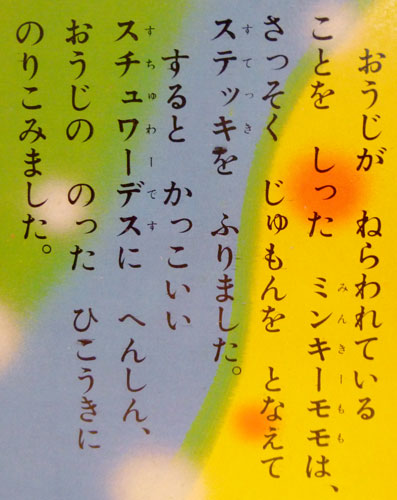 おうじが ねらわれている
ことを しった ミンキーモモは、
さっそく じゅもんを となえて
ステッキを ふりました。
すると かっこいい
スチュワーデスに へんしん、
おうじの のった ひこうきに
のりこみました。